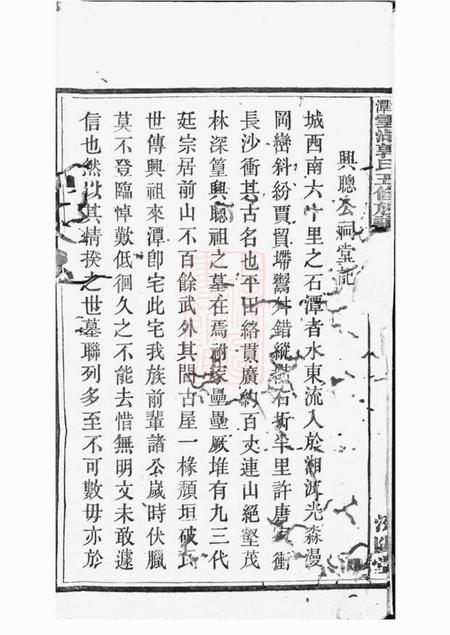 興聰公祠堂記
城西南六十里之石潭者水東流入於湘江光森漫
岡巒斜紛賈貿墆鬻舛錯縱橫石圻半里許唐有衝
長沙衝其古名也平山絡貫廣約百丈連山絕壑茂
林深篁興聰祖之墓在焉祔冢壘壘厥堆有九三代
廷宗居前山不百餘武外其間古屋一椽頹垣破瓦
世傳興祖來潭卽宅此宅我族前輩諸公歲時伏臘
莫不登臨悼歎低徊久之不能去惜無明文未敢遽
信也然以其情揆之世墓聯列多至不可數毋亦於
五修族譜